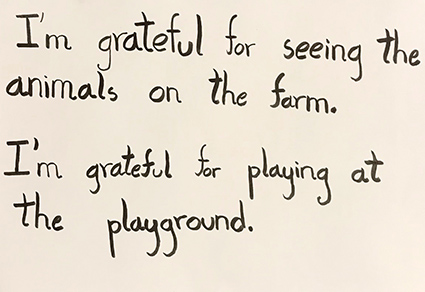 I'm grateful for seeing the
animals on the farm.
I'm grateful for playing at
the playground.